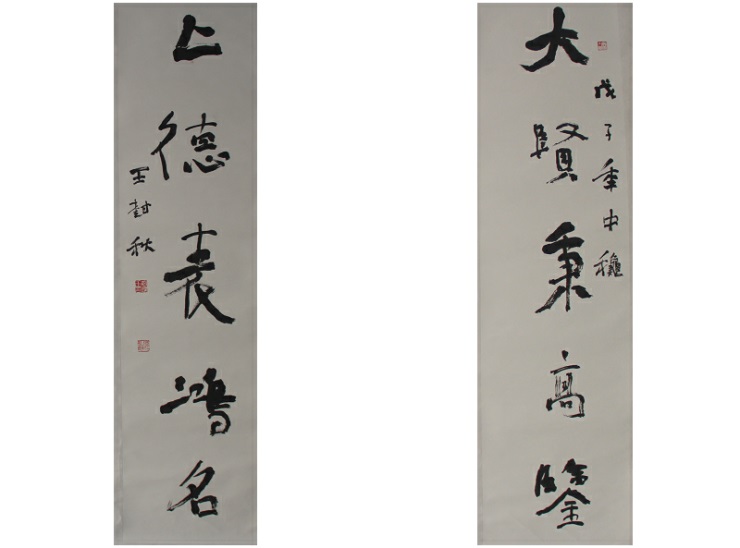 大賢秉高鑒
戊子年中穐
上德表鴻名
王封秋